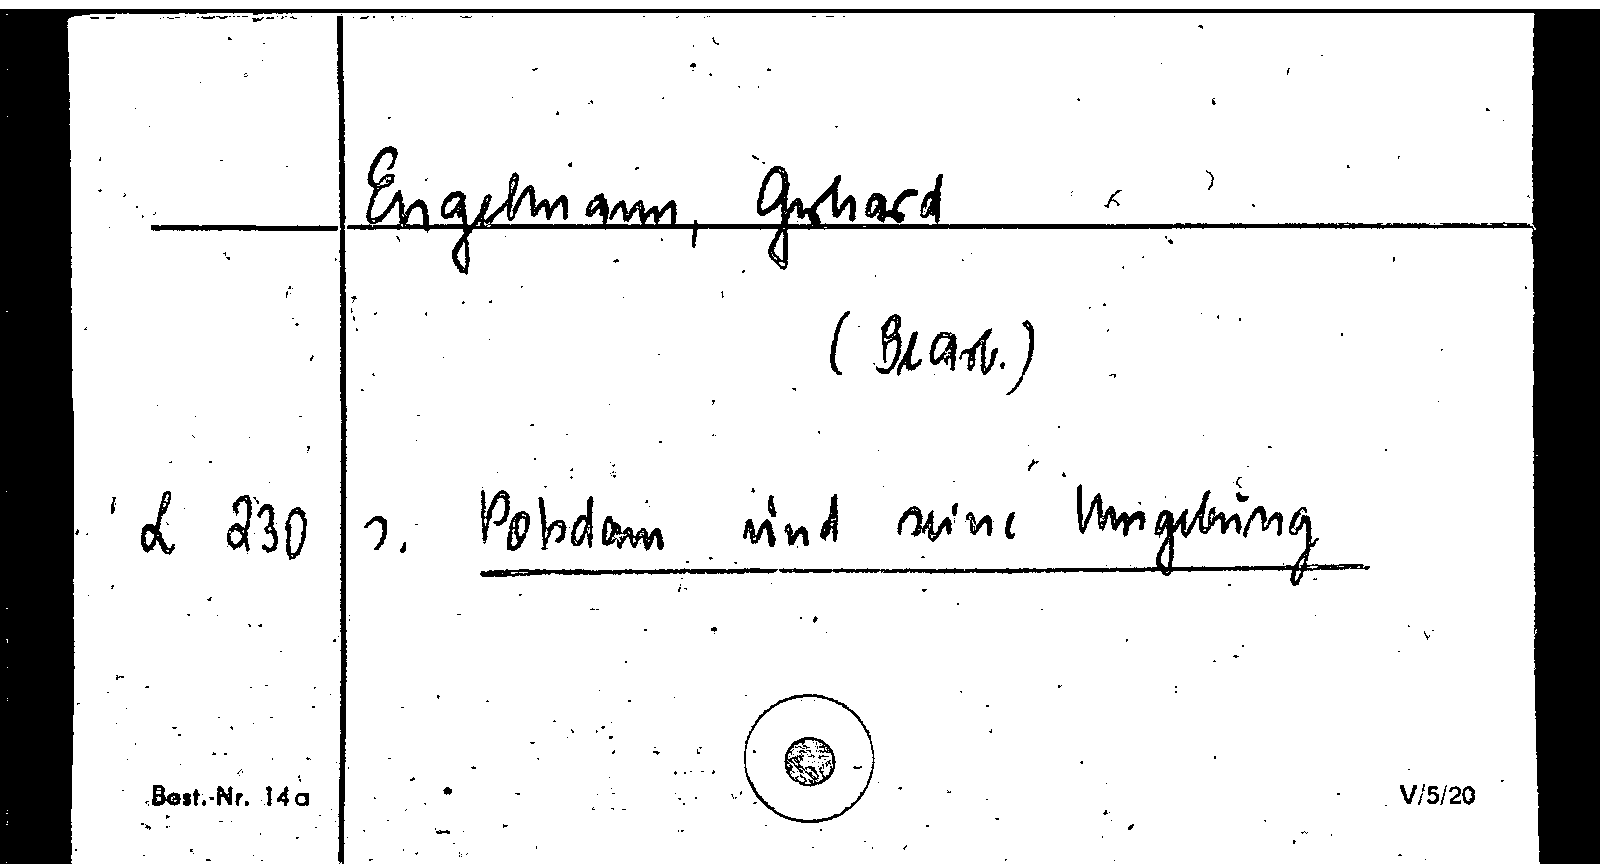 Engelmann, Gerhard
(Bearb.)
L 230 s. Potsdam und seine Umgebung
Best.-Nr. 14a V/5/20